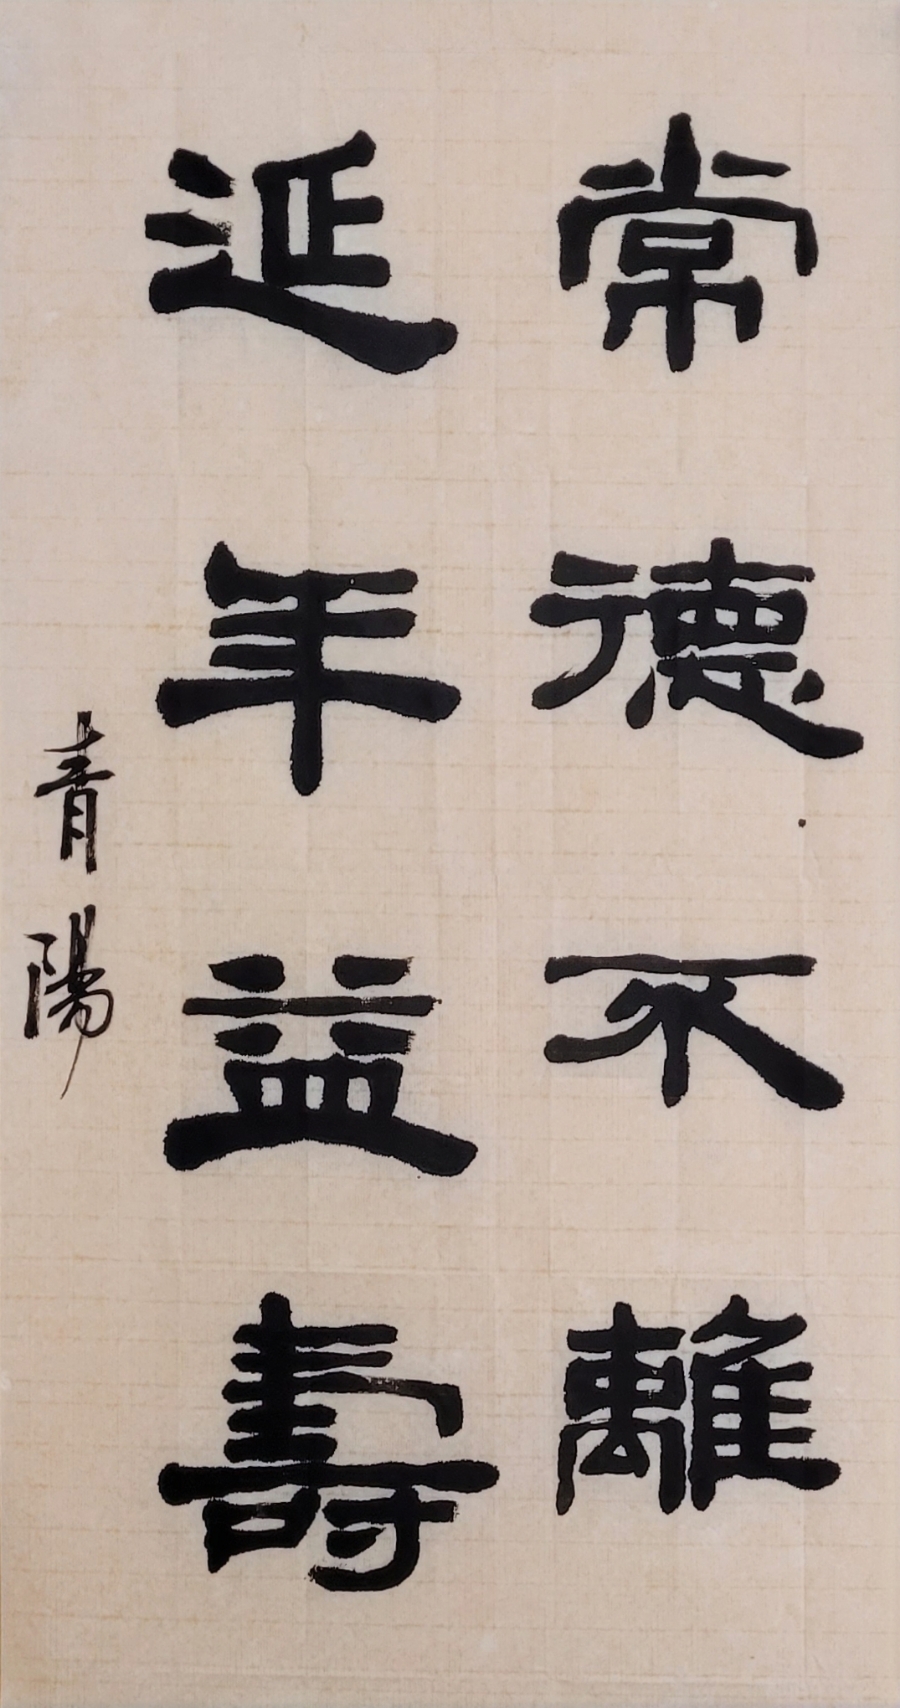 常德不離
延年益壽
青陽